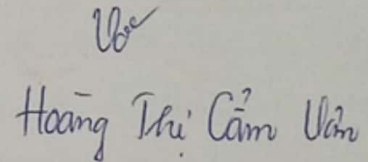 Hoàng Thị Cẩm Vân